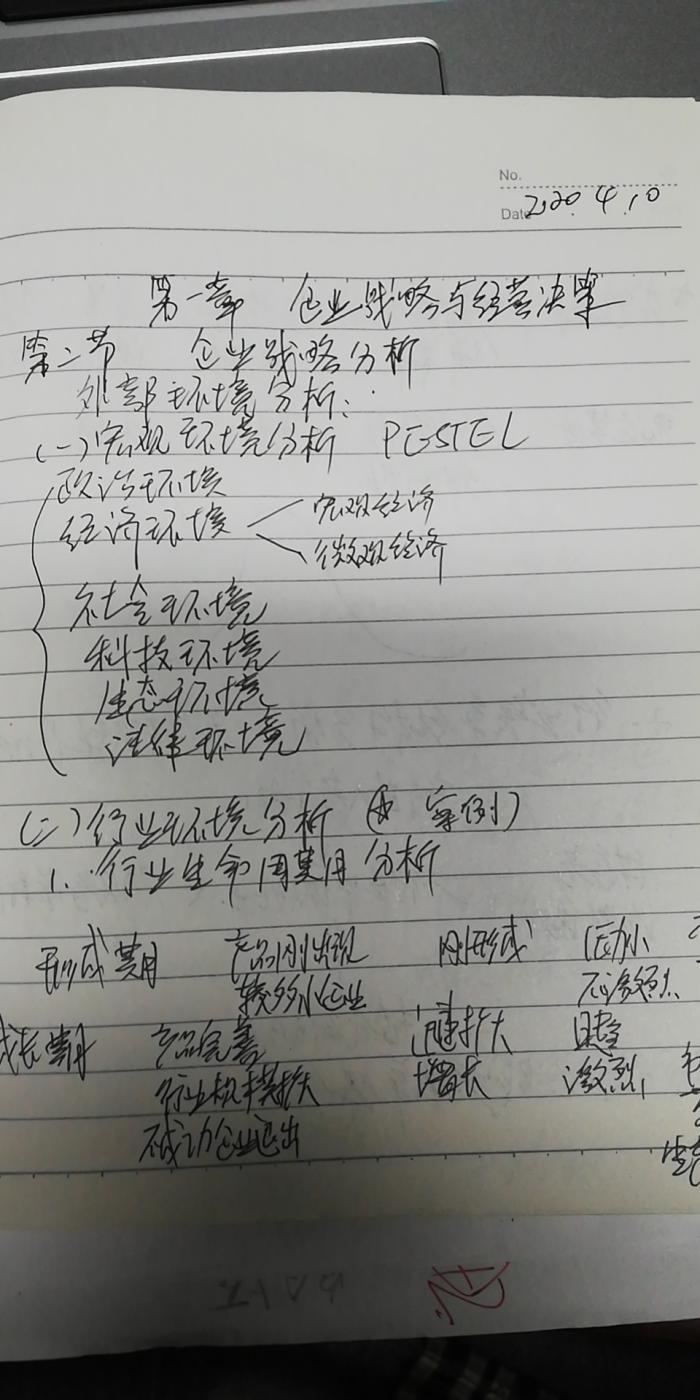 No.
Date 2020.4.10
第一章 企业战略与经营决策
第二节 企业战略分析
外部环境分析:
(一)宏观环境分析 PESTEL
政治环境
经济环境 宏观经济
微观经济
社会环境
科技环境
生态环境
法律环境
(二)行业环境分析 (☆ 案例)
1. 行业生命周期分析
形成期 产品刚出现 刚形成 压力小
较多小企业 不激烈
成长期 产品完善 迅速扩大 日趋
行业规模扩大 增长 激烈
不成功企业退出